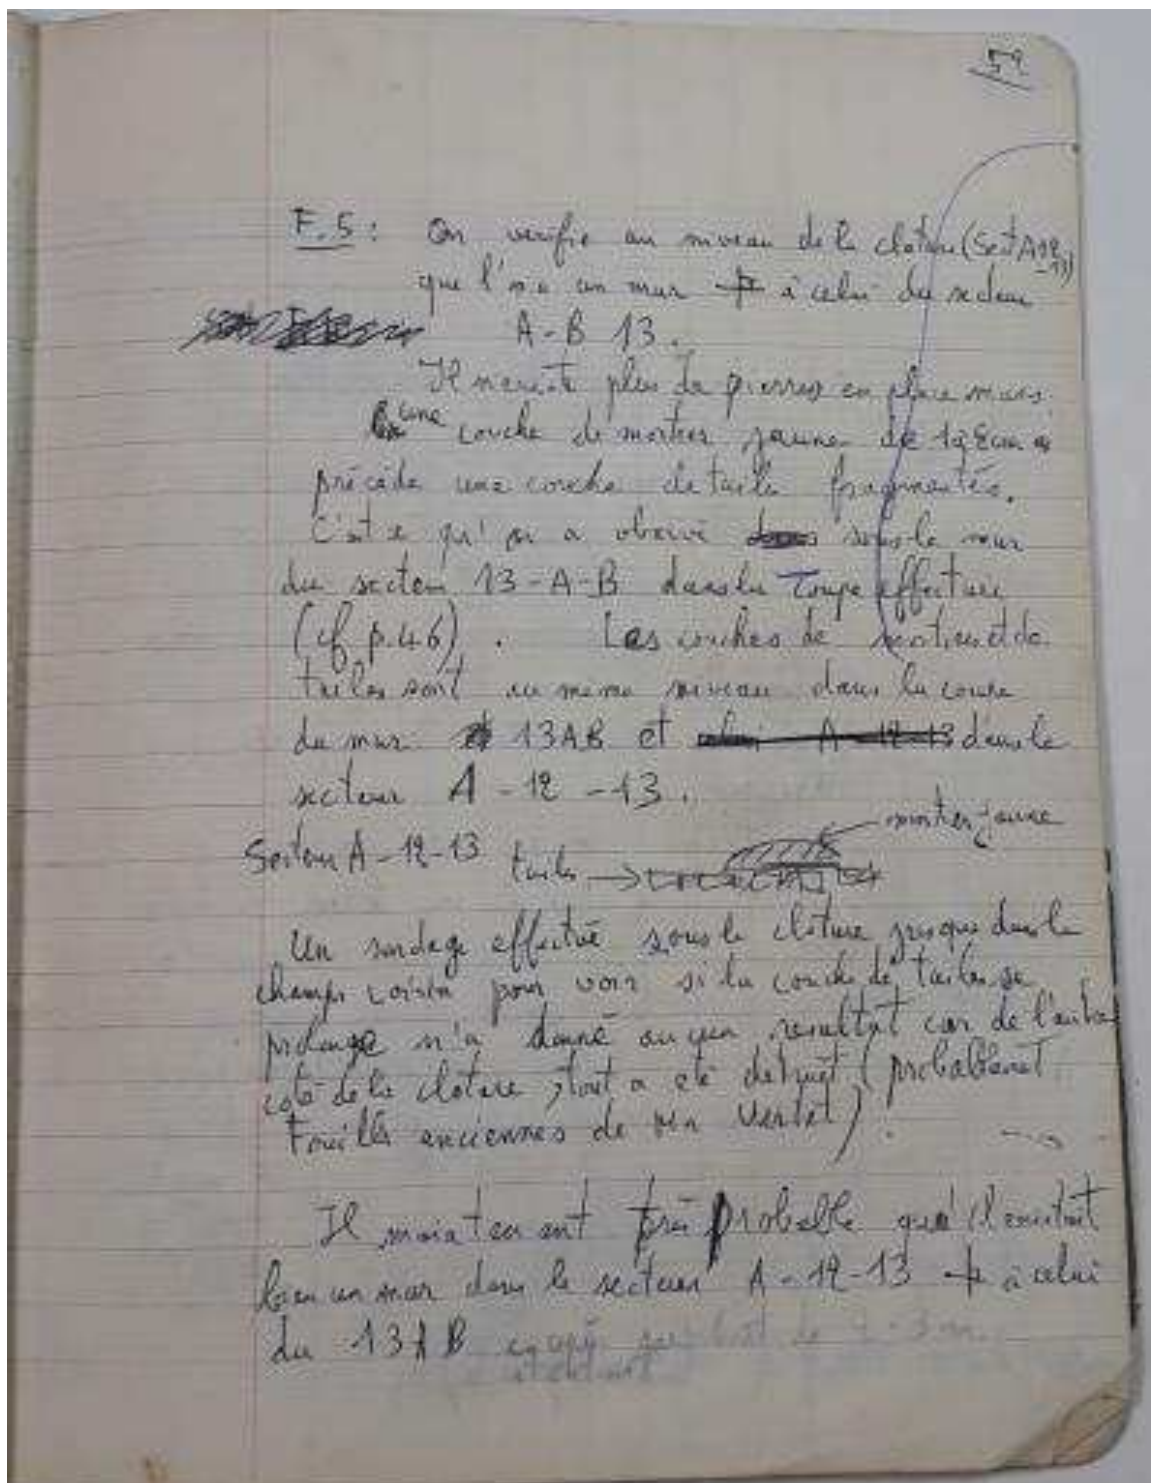 52
F.5 : On verifie au niveau de la cloture (Sect A12
-13)
que l'on a un mur à celui du secteur
A-B 13.
Il n'existe plus de pierres en place mais
une couche de mortier jaune de
précède une couche de tuiles fragmentés.
C'est ce qu'on a observé sous le mur
du secteur 13-A-B dans la coupe effectuée
(cf p.46). Les couches de mortier et de
tuiles sont au meme niveau dans la coupe
du mur 13AB et dans le
secteur A-12-13.
mortier jaune
Secteur A-12-13 tuiles →
Un sondage effectué sous la cloture jusque dans le
champs voisin pour voir si la couche de tuiles se
prolonge n'a donné aucun resultat car de l'autre
coté de la cloture, tout a eté detruit (probablement
Fouilles anciennes de Vertet).
Il maintenant très probable qu'il existait
bien un mur dans le secteur A-12-13 à celui
du 13AB